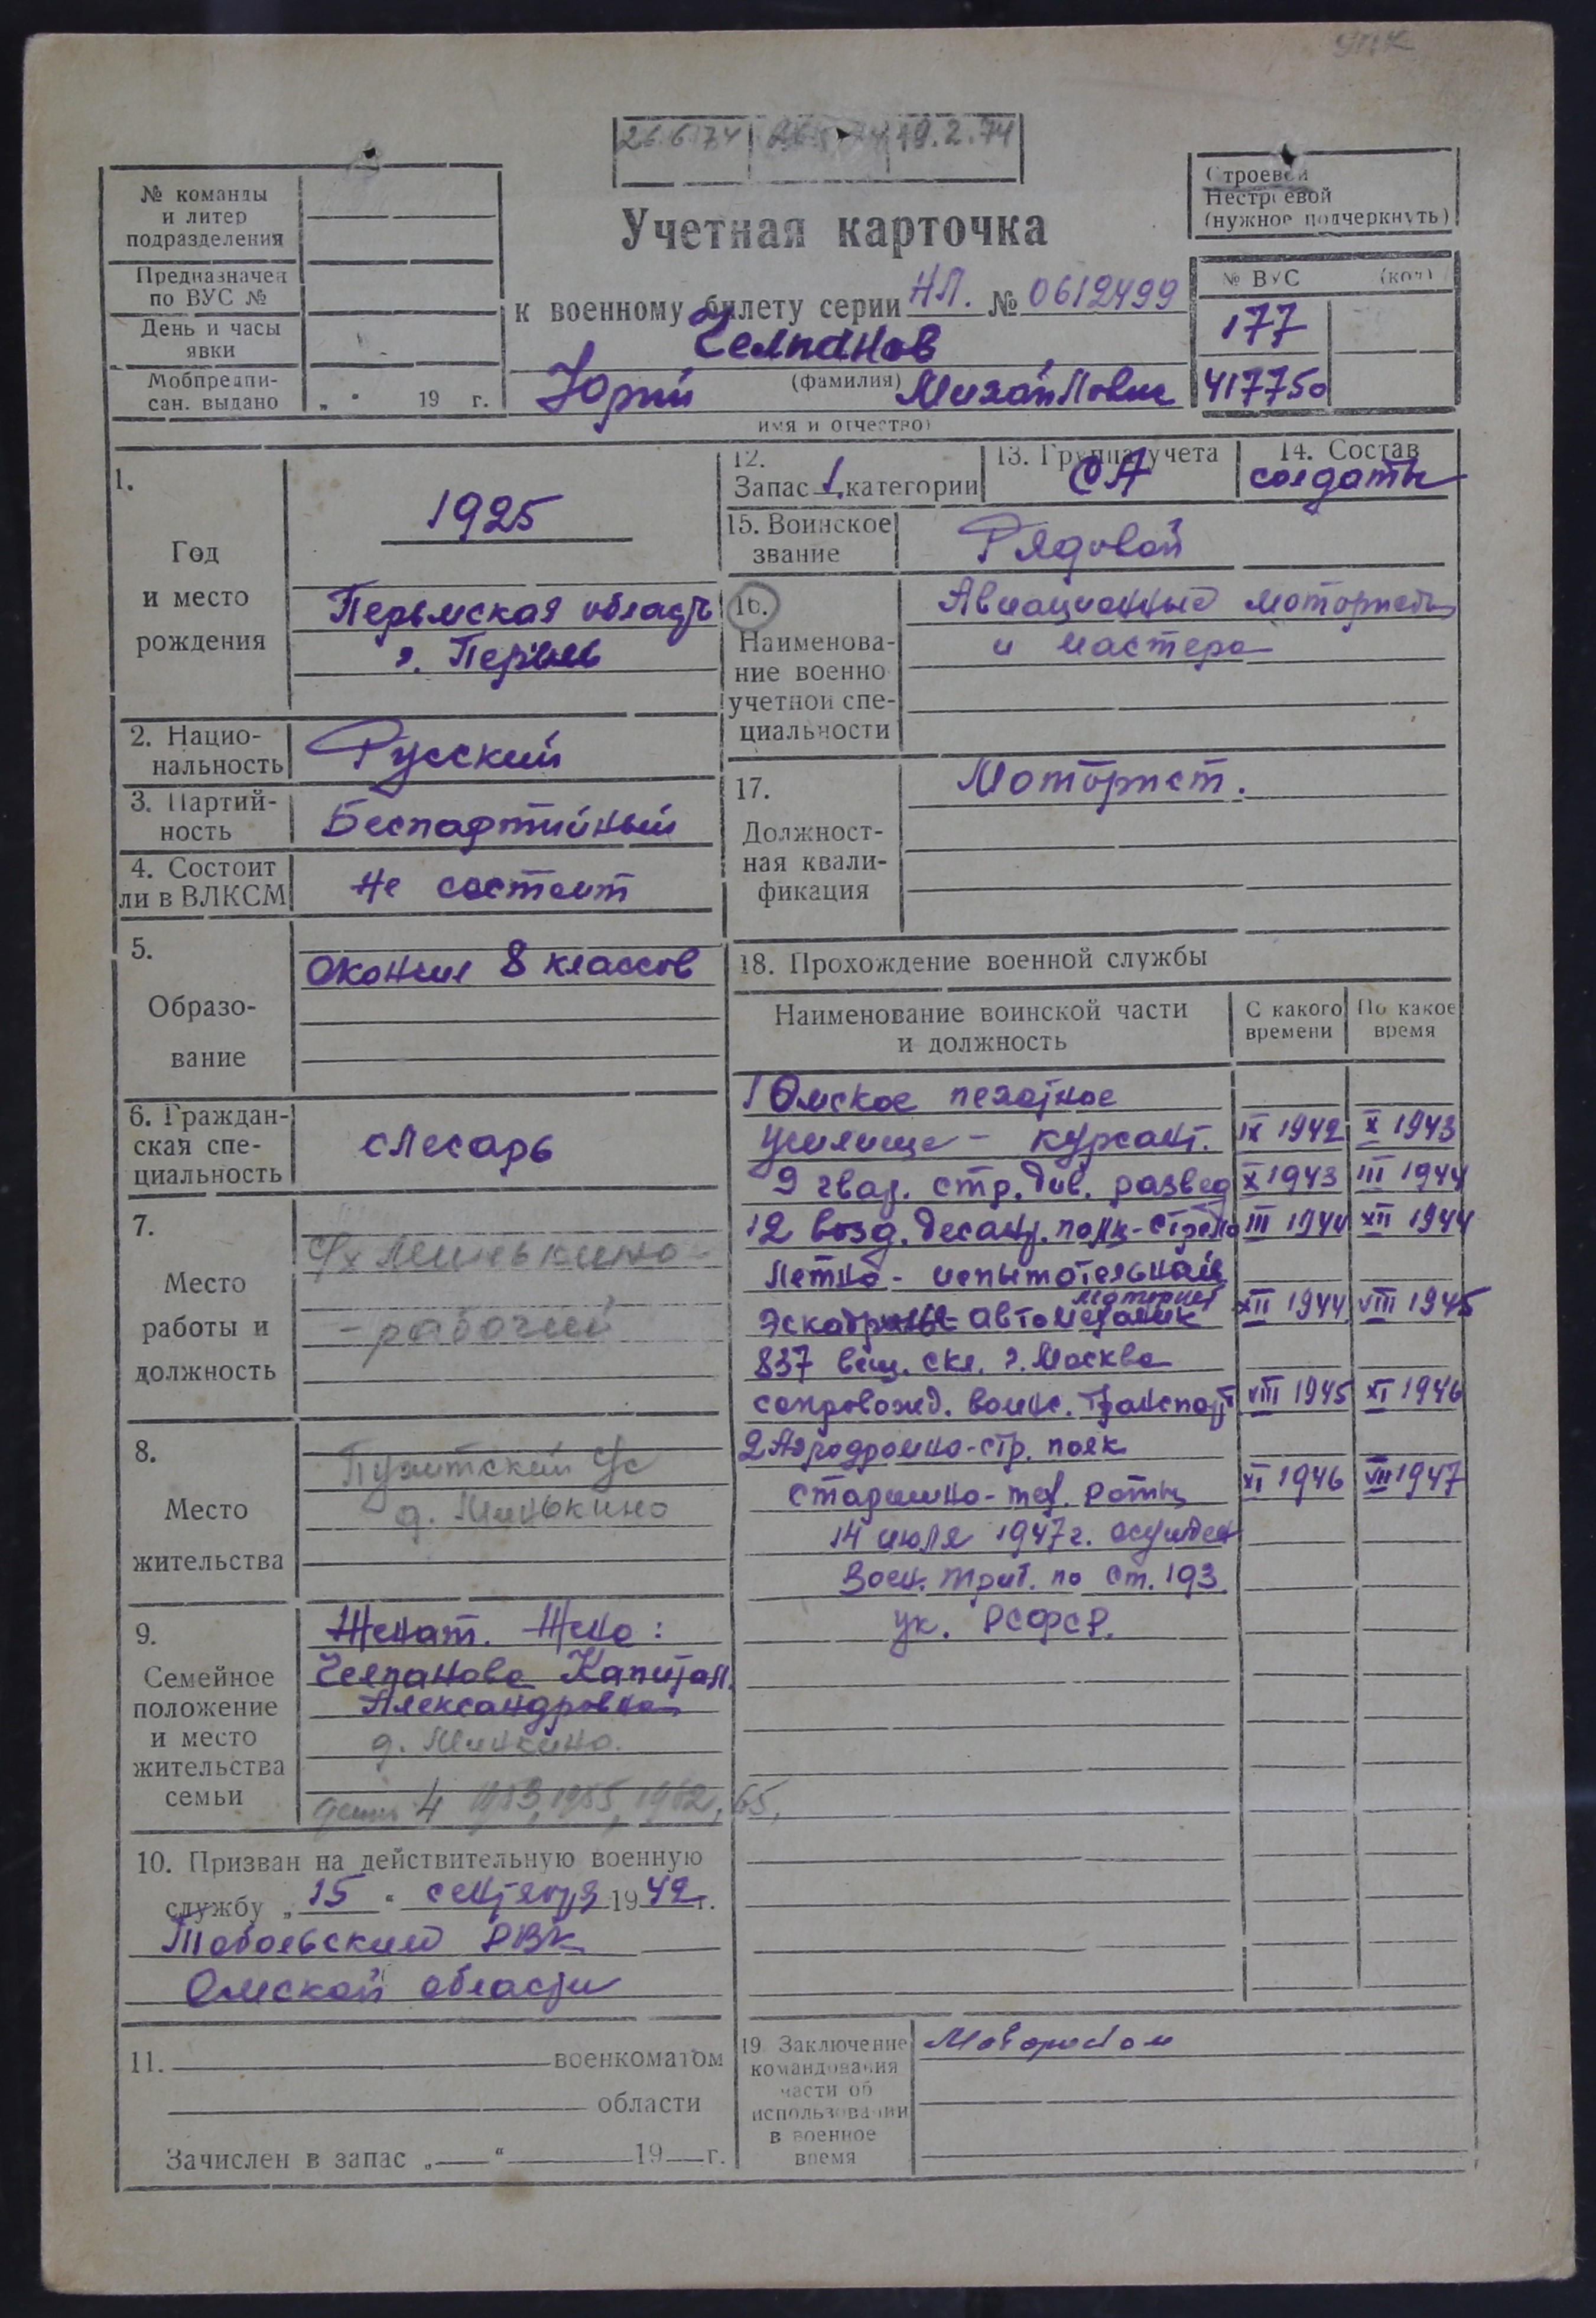 УПК
26.6.74 19.2.74
№ команды
и литер
подразделения
Предназначен
по ВУС №
День и часы
явки
Мобпредпи-
сан. выдано „ “ 19 г.
Учетная карточка
к военному билету серии НЛ. № 0612499
Челпанов
(фамилия)
Юрий Михайлович
имя и отчество)
Строевой
Нестроевой
(нужное подчеркнуть)
№ ВУС (код)
177
417750
1.
Год
и место
рождения
1925
Пермская область
г. Пермь
2. Нацио-
нальность
Русский
3. Партий-
ность
Беспартийный
4. Состоит
ли в ВЛКСМ
Не состоит
5.
Образо-
вание
Окончил 8 классов
6. Граждан-
ская спе-
циальность
слесарь
7.
Место
работы и
должность
с/х Минькино-
- рабочий
8.
Место
жительства
д. Минькино
9.
Семейное
положение
и место
жительства
семьи
Женат. Жена:
Челпанова Капитал.
Александровна
д. Минкино.
дети 4 1953, 1955, 1962, 65,
10. Призван на действительную военную
службу „15“ сентября 1942 г.
Тобольский РВК
Омской области
11. военкоматом
области
Зачислен в запас „ “ 19 г.
12.
Запас 1 категории
13. Группа учета
СА
14. Состав
солдаты
15. Воинское
звание
Рядовой
16.
Наименова-
ние военно
учетной спе-
циальности
Авиационные мотористы
и мастера
17.
Должност-
ная квали-
фикация
Моторист.
18. Прохождение военной службы
Наименование воинской части
и должность
С какого
времени
По какое
время
1 Омское пехотное
училище - курсант. IX 1942 X 1943
9 гвар. стр. див. развед X 1943 III 1944
12 возд. десант. полк - стрело III 1944 XII 1944
Летно - испытательная
моторист
эскадрилья автомеханик XII 1944 VIII 1945
837 вещ. скл. г. Москва
сопровожд. воинс. транспорт VIII 1945 XI 1946
2 Аэродромно-стр. полк
старшина - тех. роты XI 1946 VII 1947
14 июля 1947 г. осужден
Воен. триб. по ст. 193
ук. РСФСР.
19. Заключение
командования
части об
использовании
в военное
время